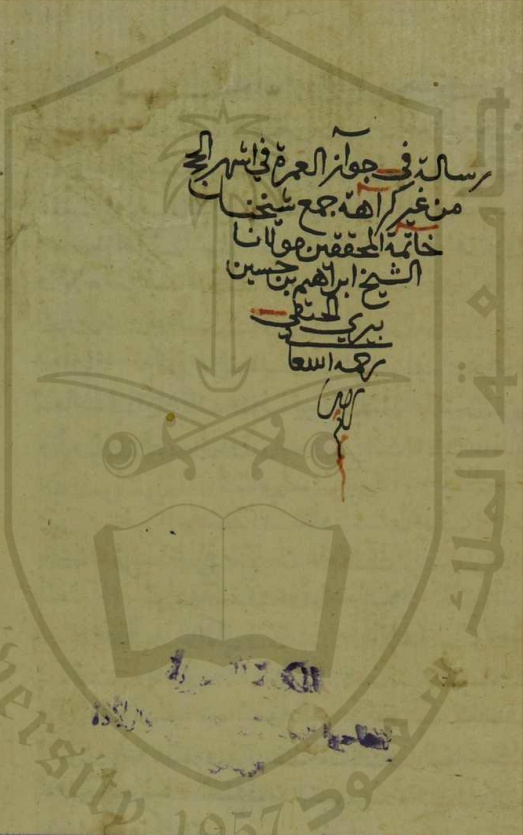 رسالة في جواز العمرة في اشهر الحج
من غير كراهة جمع شيخنا
خاتمة المحققين مولانا
الشيخ ابراهيم بن حسين
بيري الحنفي
رحمه الله تعا
امين
جامعة الملك سعود
University 1957